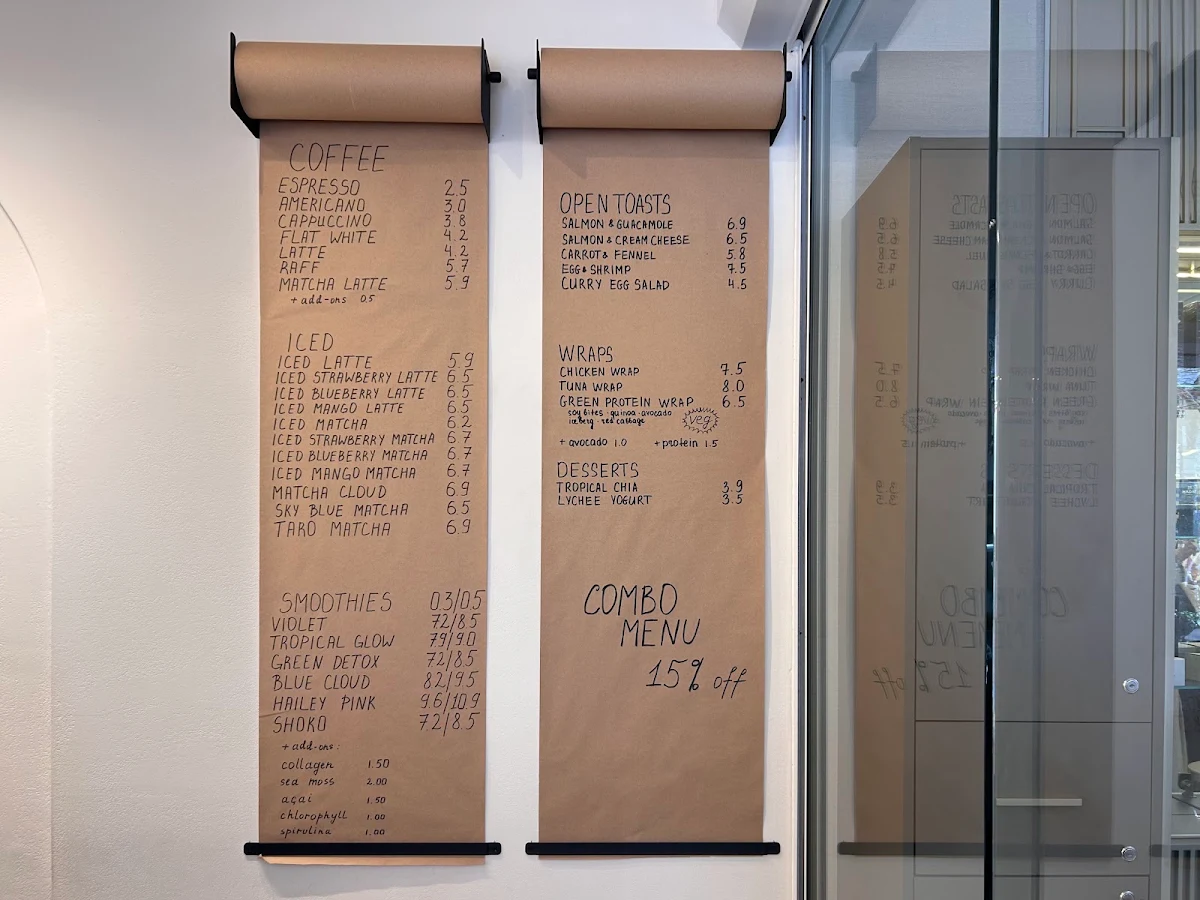 COFFEE
ESPRESSO 2.5
AMERICANO 3.0
CAPPUCCINO 3.8
FLAT WHITE 4.2
LATTE 4.2
RAFF 5.7
MATCHA LATTE 5.9
+ add-ons 0.5
ICED
ICED LATTE 5.9
ICED STRAWBERRY LATTE 6.5
ICED BLUEBERRY LATTE 6.5
ICED MANGO LATTE 6.5
ICED MATCHA 6.2
ICED STRAWBERRY MATCHA 6.7
ICED BLUEBERRY MATCHA 6.7
ICED MANGO MATCHA 6.7
MATCHA CLOUD 6.9
SKY BLUE MATCHA 6.5
TARO MATCHA 6.9
SMOOTHIES 0.3/0.5
VIOLET 7.2/8.5
TROPICAL GLOW 7.9/9.0
GREEN DETOX 7.2/8.5
BLUE CLOUD 8.2/9.5
HAILEY PINK 9.6/10.9
SHOKO 7.2/8.5
+ add-ons:
collagen 1.50
sea moss 2.00
açai 1.50
chlorophyll 1.00
spirulina 1.00
OPEN TOASTS
SALMON & GUACAMOLE 6.9
SALMON & CREAM CHEESE 6.5
CARROT & FENNEL 5.8
EGG & SHRIMP 7.5
CURRY EGG SALAD 4.5
WRAPS
CHICKEN WRAP 7.5
TUNA WRAP 8.0
GREEN PROTEIN WRAP 6.5
soy bites · quinoa · avocado
iceberg · red cabbage
veg
+ avocado 1.0 + protein 1.5
DESSERTS
TROPICAL CHIA 3.9
LYCHEE YOGURT 3.5
COMBO
MENU
15% off